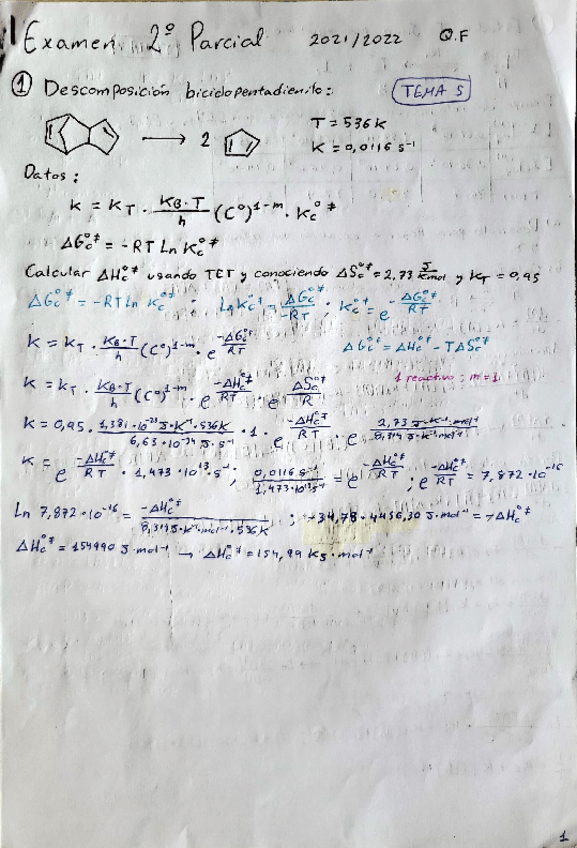 Examen 2º Parcial 2021/2022 Q.F
① Descomposición biciclopentadienilo: TEMA 5
⟶ 2
T = 536 K
K = 0,0116 s⁻¹
Datos:
K = K_T · (K_B·T)/h (C°)^(1-m) · K_c^(°‡)
ΔG_c^(°‡) = -RT Ln K_c^(°‡)
Calcular ΔH_c^(°‡) usando TET y conociendo ΔS_c^(°‡) = 2,73 J/(K mol) y K_T = 0,95
ΔG_c^(°‡) = -RT Ln K_c^(°‡) ; Ln K_c^(°‡) = ΔG_c^(°‡)/(-RT) ; K_c^(°‡) = e^(-ΔG_c^(°‡)/RT)
K = K_T · (K_B·T)/h (C°)^(1-m) · e^(-ΔG_c^(°‡)/RT) ΔG_c^(°‡) = ΔH_c^(°‡) - TΔS_c^(°‡)
K = K_T · (K_B·T)/h (C°)^(1-m) · e^(-ΔH_c^(°‡)/RT) · e^(ΔS_c^(°‡)/R) 1 reactivo; m=1
K = 0,95 · (1,381·10⁻²³ J·K⁻¹·536K)/(6,63·10⁻³⁴ J·s⁻¹) · 1 · e^(-ΔH_c^(°‡)/RT) · e^(2,73 J·K⁻¹·mol⁻¹/8,314 J·K⁻¹·mol⁻¹)
K = e^(-ΔH_c^(°‡)/RT) · 1,473·10¹³ s⁻¹ ; 0,0116 s⁻¹/1,473·10¹³ s⁻¹ = e^(-ΔH_c^(°‡)/RT) ; e^(-ΔH_c^(°‡)/RT) = 7,872·10⁻¹⁶
Ln 7,872·10⁻¹⁶ = -ΔH_c^(°‡)/(8,314 J·K⁻¹·mol⁻¹·536K) ; -34,78·4456,30 J·mol⁻¹ = -ΔH_c^(°‡)
ΔH_c^(°‡) = 154990 J·mol⁻¹ → ΔH_c^(°‡) = 154,99 KJ·mol⁻¹
1